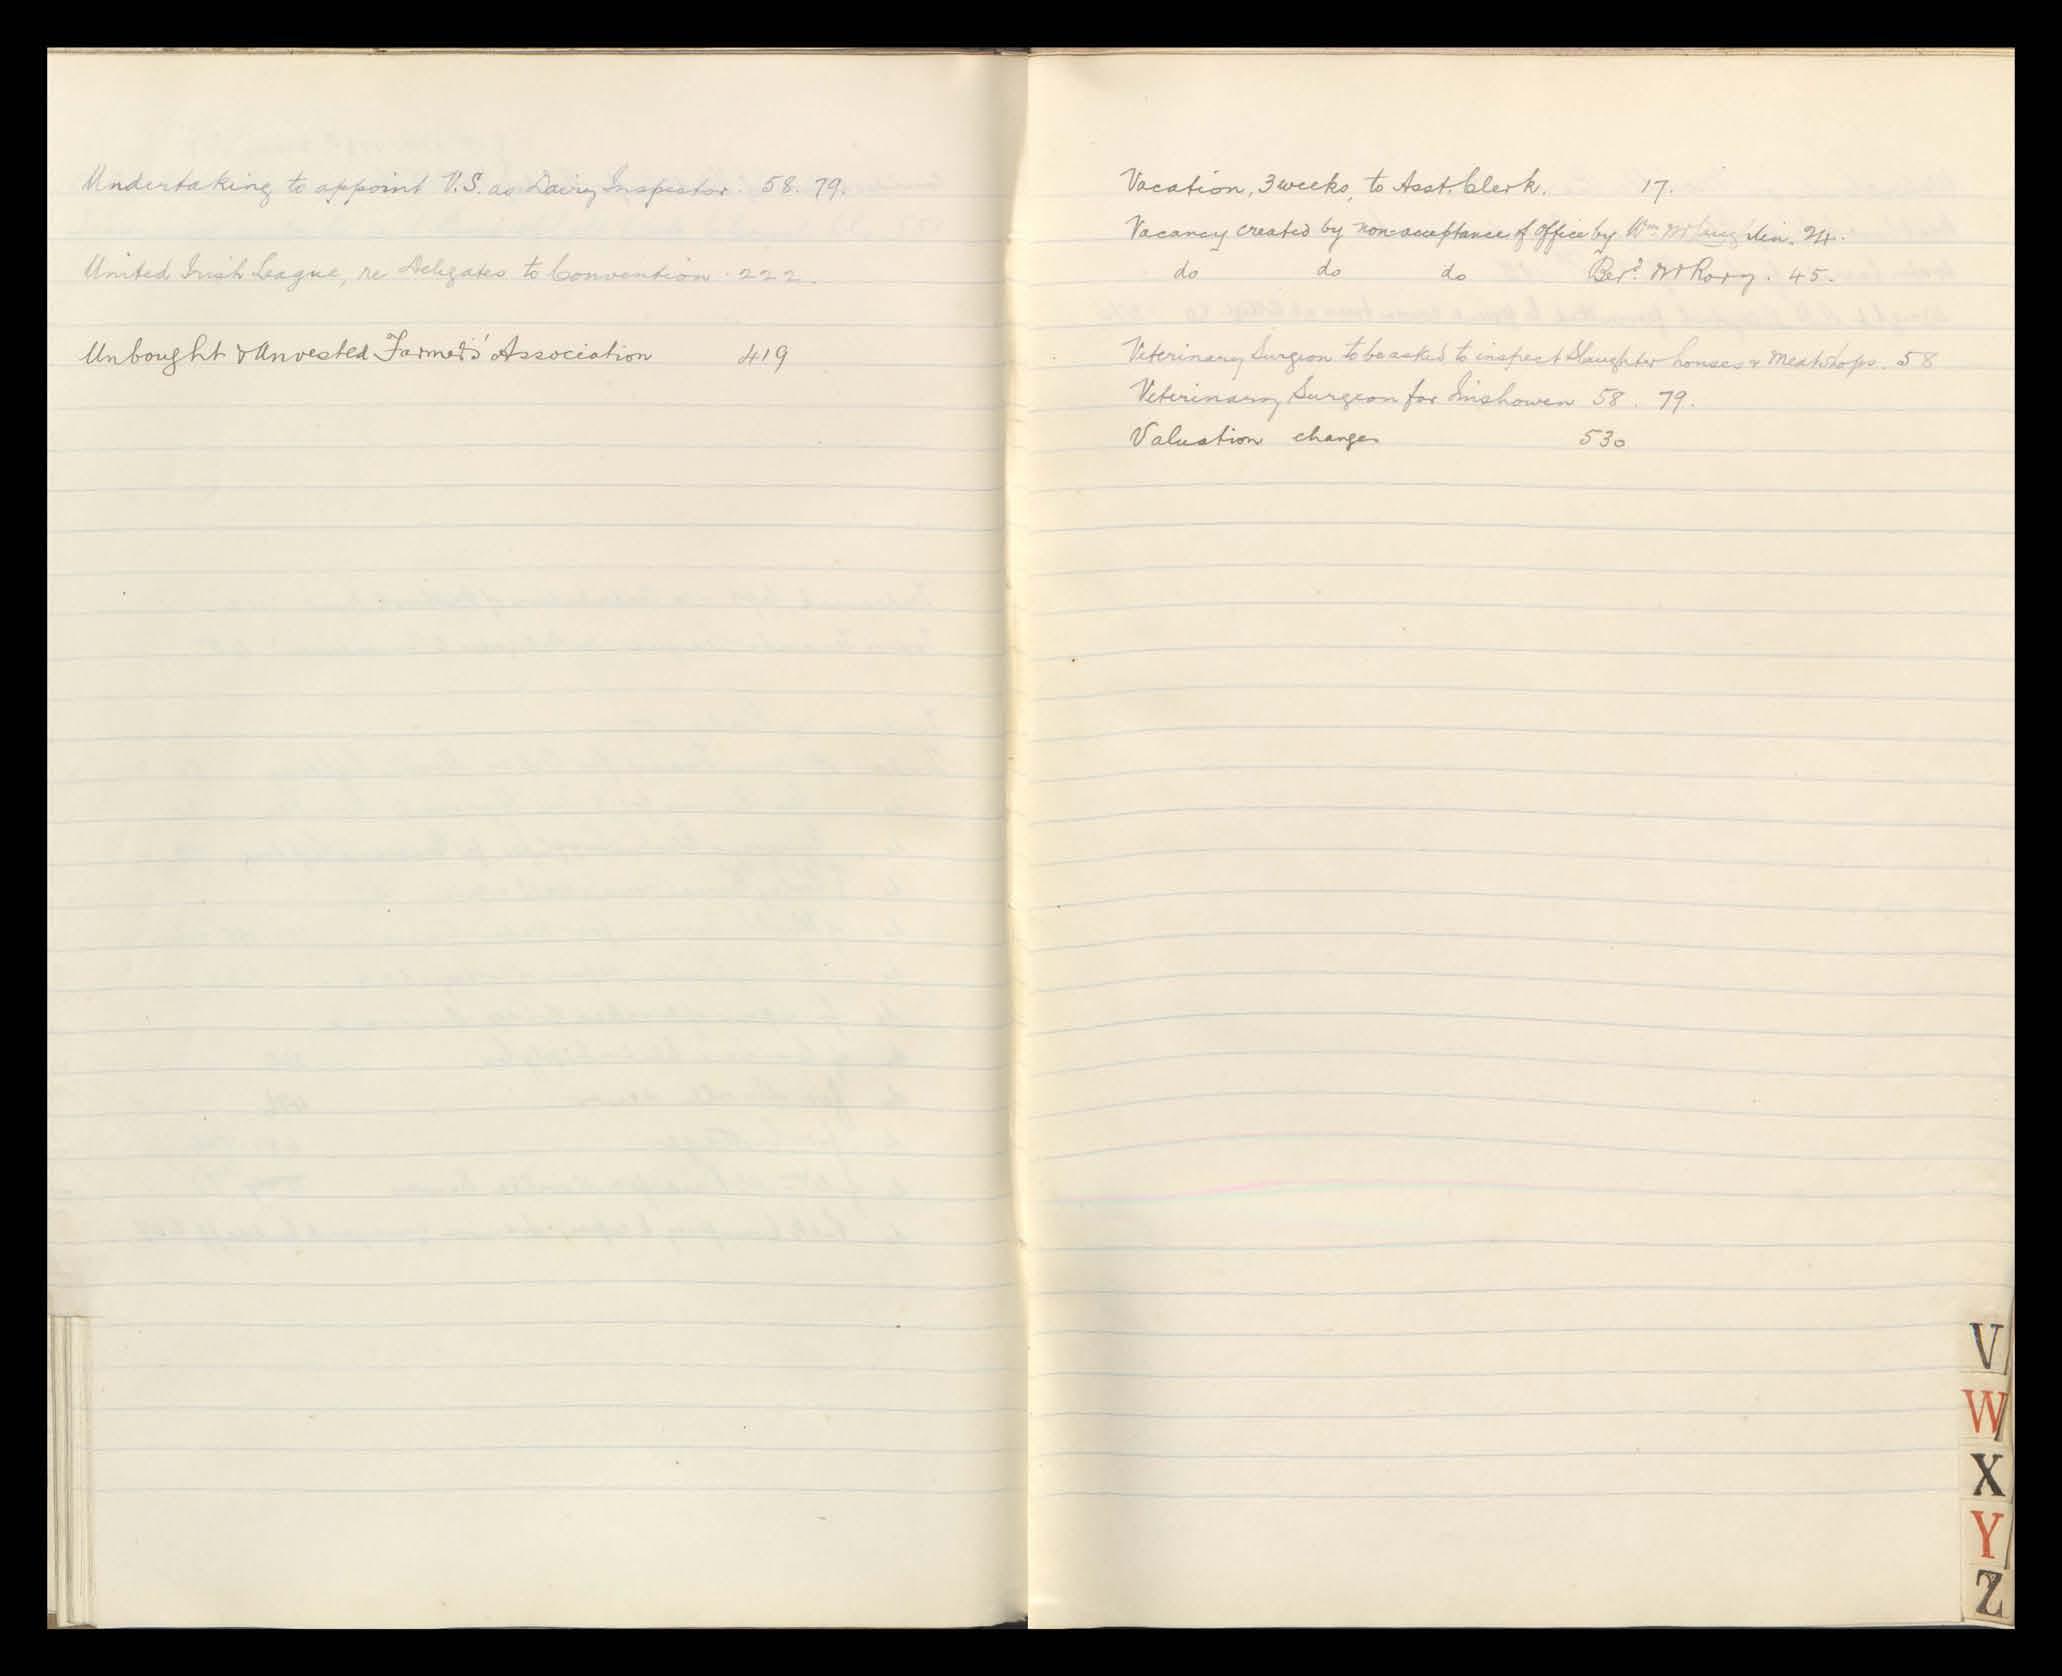 Undertaking to appoint V.S. as Dairy Inspector. 58. 79.
United Irish League, re Delegates to Convention. 222.
Unbought & Unvested Farmers' Association 419
Vacation, 3 weeks, to Asst. Clerk. 17.
Vacancy created by non-acceptance of Office by Wm McLaughlin. 24.
do do do Berd. McRory. 45.
Veterinary Surgeon to be asked to inspect Slaughter houses & Meat Shops. 58
Veterinary Surgeon for Inishowen 58. 79.
Valuation changes 530
V
W
X
Y
Z